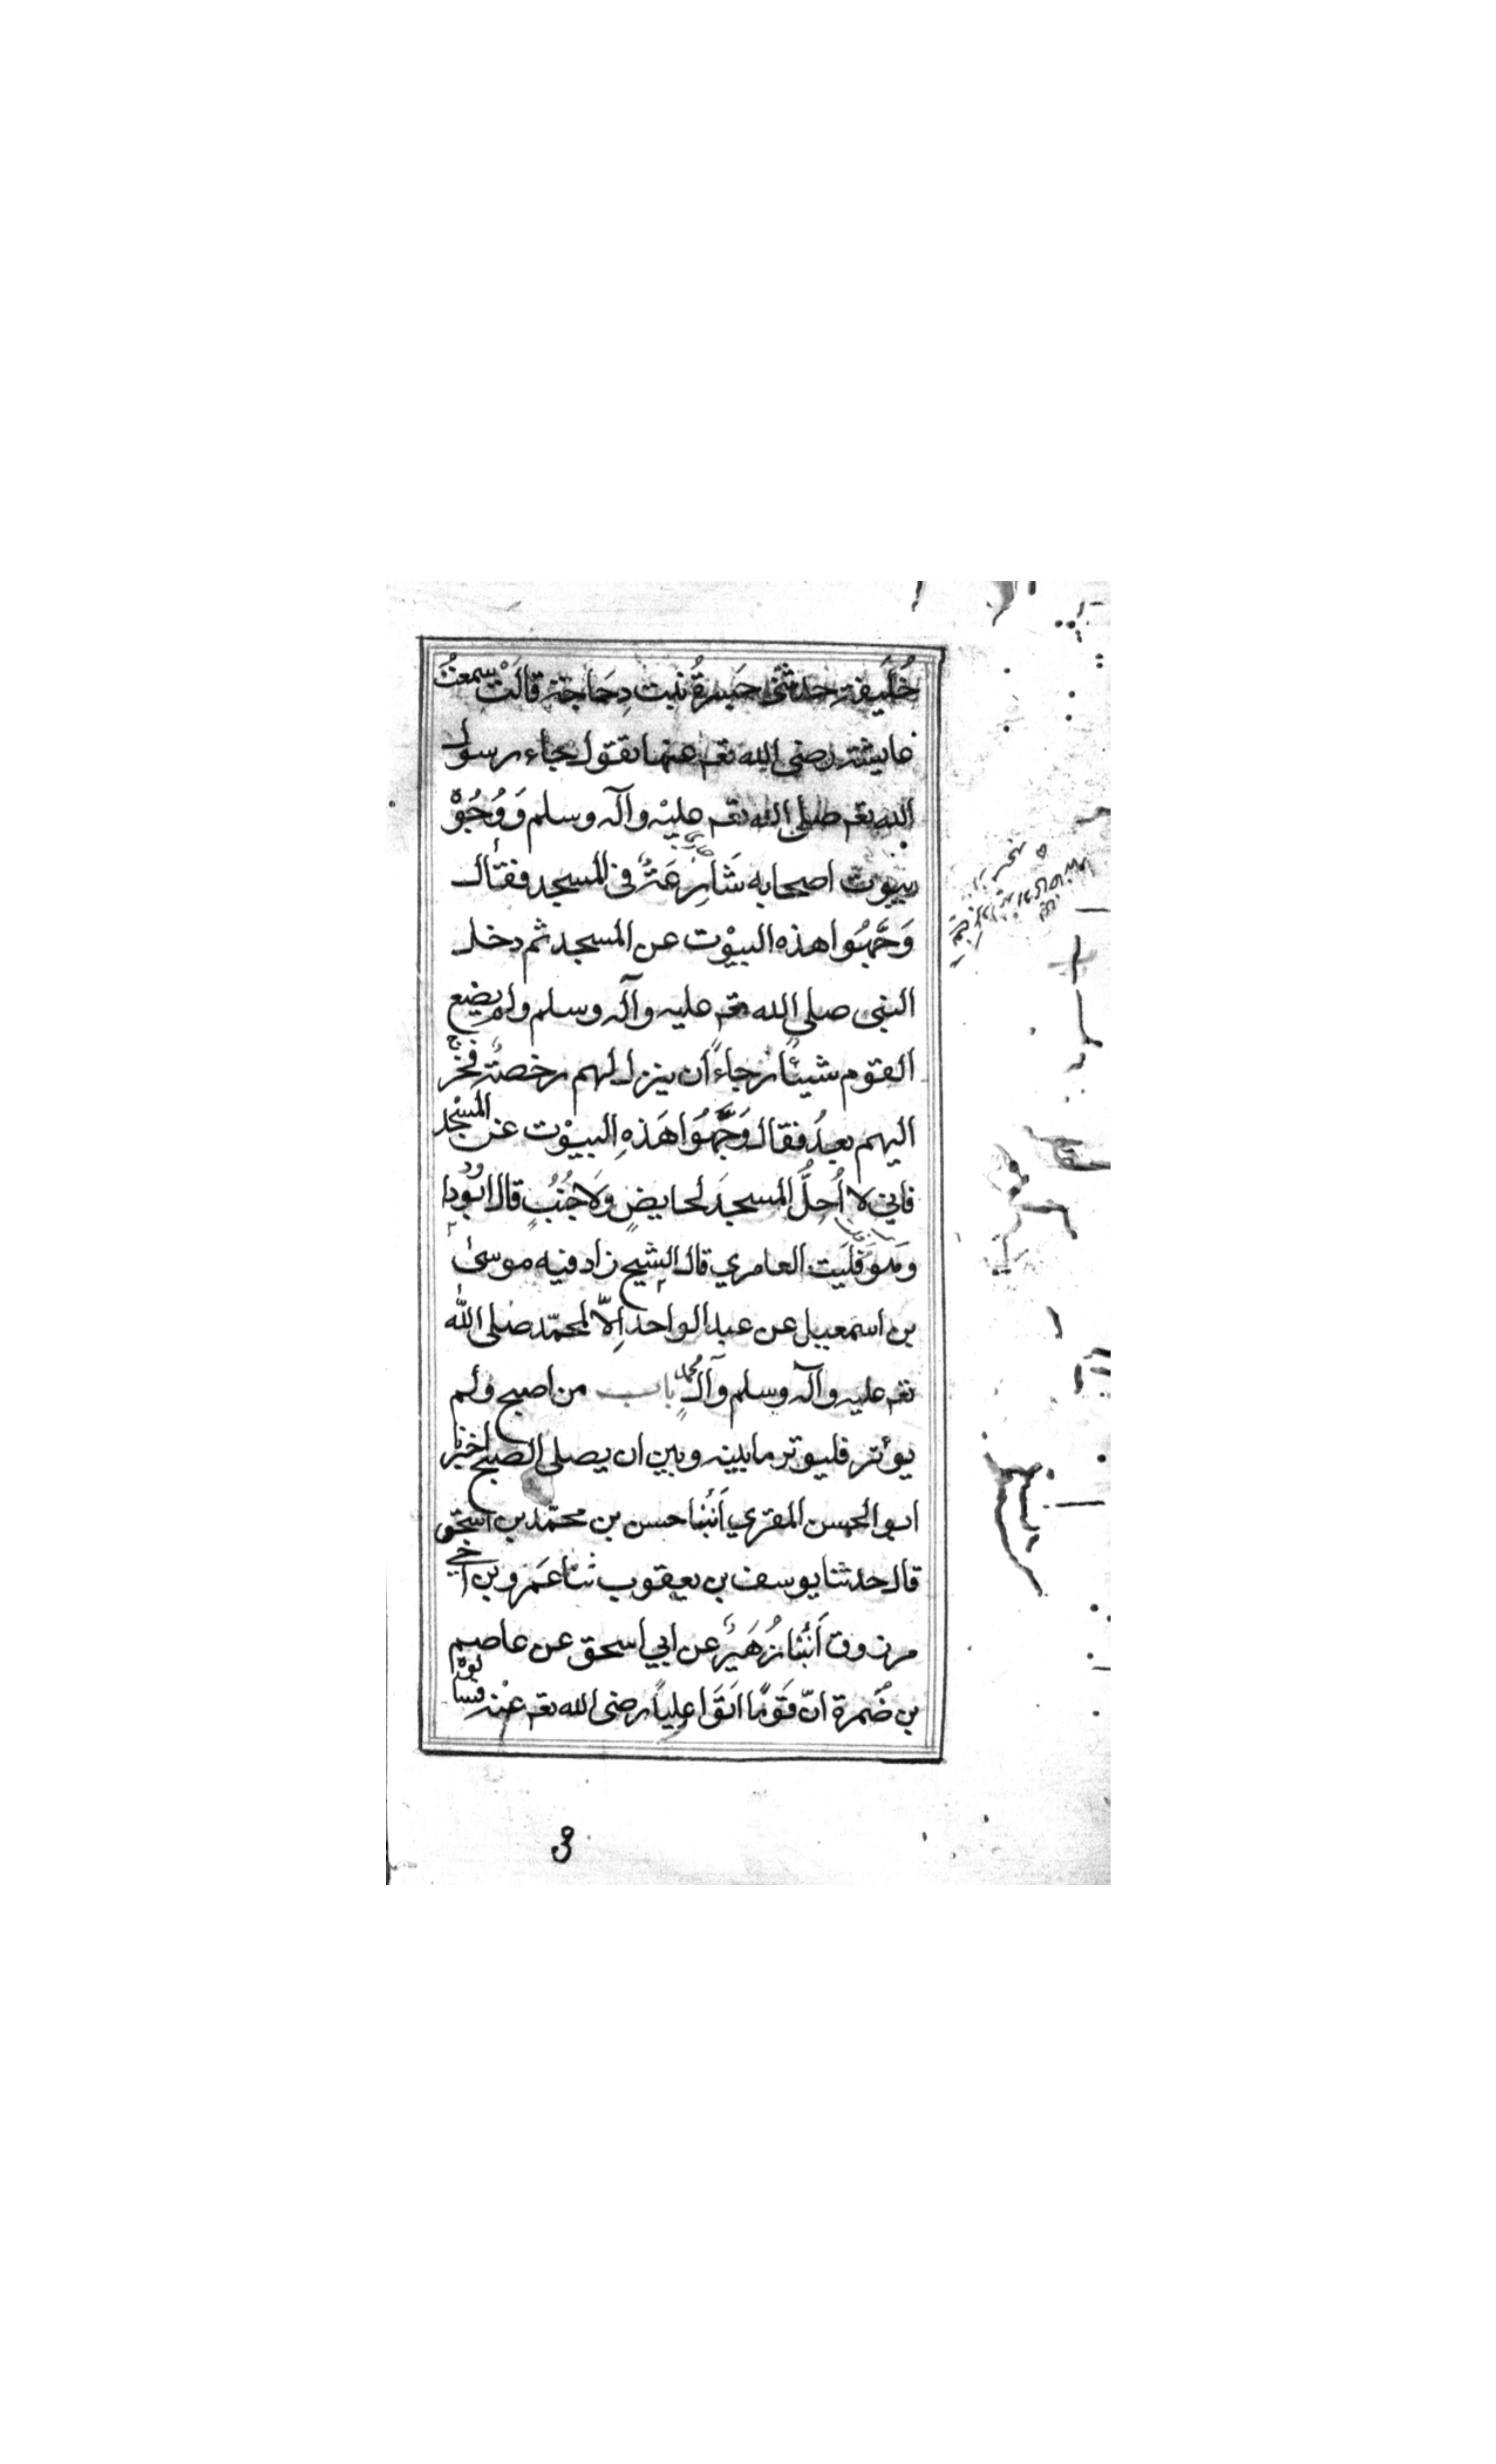 خُلَيفة حدثتنى جَسرةُ بنت دِجَاجة قالَتْ سمعتُ
عايشة رضى الله تعـ عنها تقول جاء رسول
الله تعـ صلى الله تعـ عليْه وآله وسلم وَوُجُوْهُ
بيُوت اصحابه شَارِعَةٌ فى المسجد فقال
وَجِّهُوا هذه البيُوْت عن المسجد ثم دخل
النبى صلى الله تعـ عليه وآله وسلم ولم يضع
القوم شيئًا رجاءً ان ينزل لهم رخصةٌ فخرج
اليهم بعدُ فقال وَجِّهُوا هَذهِ البيُوْت عن المسْجد
فانى لا اُحِلُّ المسجدَ لحايضٍ وَلا جُنُبٍ قال ابوداود
وهو فُلَيت العامري قال الشيخ زاد فيه موسىٰ
بن اسمعيل عن عبد الواحد اِلاّ لمحمّد صلى الله
تعـ عليه وآله وسلم وآلِ محمد باب من اصبح ولم
يوتر فليوتر ما بينه وبين ان يصلى الصبح اخبرنا
ابو الحسن المقري اَنْبَنا حسن بن محمّد بن اسحق
قال حدثنا يوسف بن يعقوب ثنا عَمرو بن
مرزوق اَنْبَنا زُهَيرٌ عن ابي اسحق عن عاصم
بن ضَمرة انّ قَومًا اتَوَا علياً رضى الله تعـ عنْه فسالوه